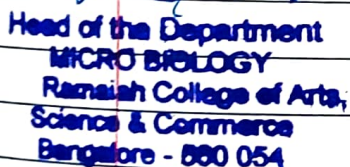 Head of the Department
MICRO BIOLOGY
Ramaiah College of Arts,
Science & Commerce
Bangalore - 560 054